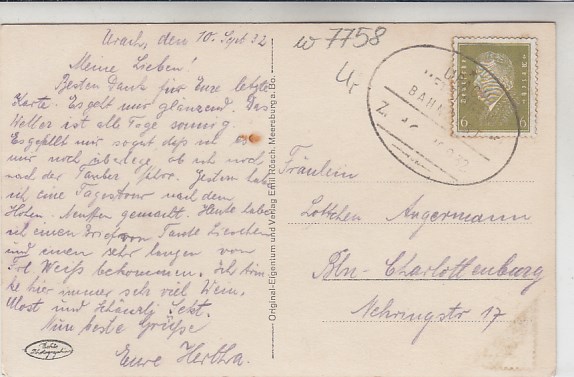 Urach, den 10. Sept 32
Meine Lieben!
Besten Dank für Eure letzte
Karte. Es geht mir glänzend. Das
Wetter ist alle Tage sonnig.
Es gefällt mir sogut daß ich
nur noch überlege, ob ich noch
nach der Tauber fahre. Gestern habe
ich eine Tagestour nach dem
Hohen. Neuffen gemacht. Heute habe
ich einen Brief von Tante Lieschen
und einen sehr langen von
Frl Weiß bekommen. Ich trin-
ke hier immer sehr viel Wein,
Most und Sekt.
Nun beste Grüße
Eure Hertha.
Echte Photographie
Original-Eigentum und Verlag Emil Rösch, Meersburg a. Bo.
w 7758
BAHN
Z.
6 6
Fräulein
Lottchen Angermann
Bln-Charlottenburg
Nehringstr 17